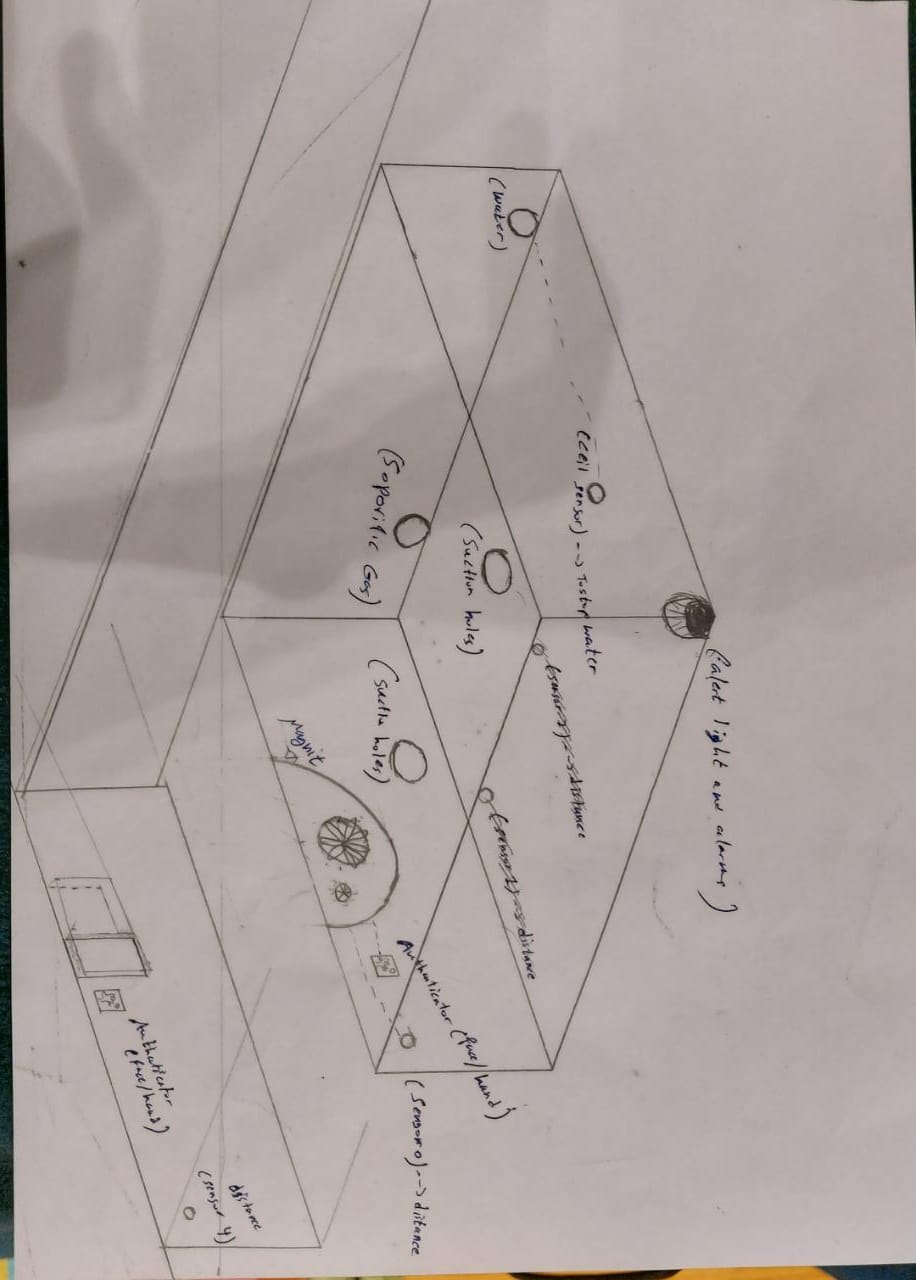 (alert light and alarms)
(ceil sensor) --> To stop water
(sensor 2) --> distance
(water)
(sensor 1) --> distance
(Suction holes)
Authenticator (face/hand)
(Sensor 0) --> distance
(Soporific Gas)
(Suction holes)
Magnit
distance
(sensor 4)
Authenticator
(face/hand)